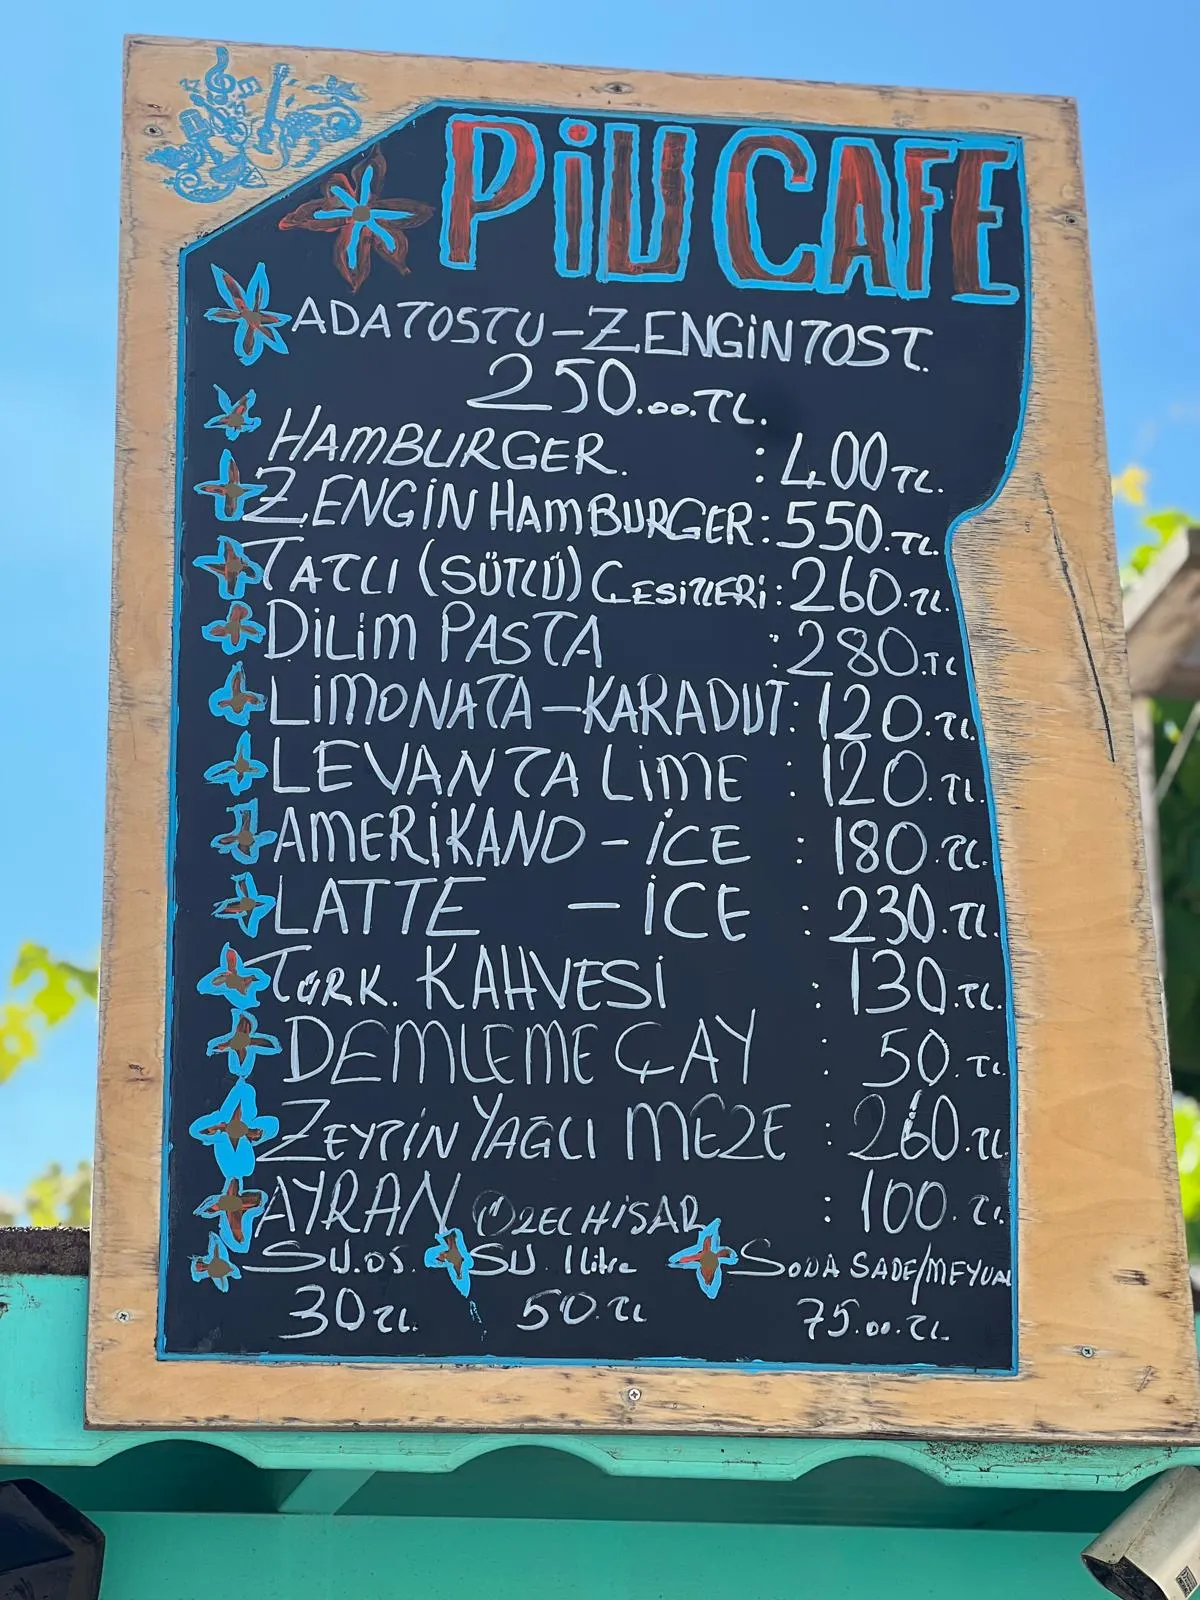 PiU CAFE
ADA TOSTU - ZENGiN TOST.
250.00.TL.
HAMBURGER. : 400 TL.
ZENGiN HAMBURGER: 550.TL.
TATLI (SÜTLÜ) ÇESiTLERi: 260.TL.
DiLiM PASTA : 280.TL
LiMONATA - KARADUT: 120.TL.
LEVANTA LiME : 120.TL.
AMERiKANO - iCE : 180.TL.
LATTE - iCE : 230.TL.
TÜRK. KAHVESi : 130.TL.
DEMLEME ÇAY : 50.TL.
ZEYTiN YAĞLI MEZE : 260.TL.
AYRAN ÖZEL HiSAR : 100.TL.
SU.05. SU. 1 Litre SODA SADE/MEYVALI
30 TL. 50.TL 75.00.TL.